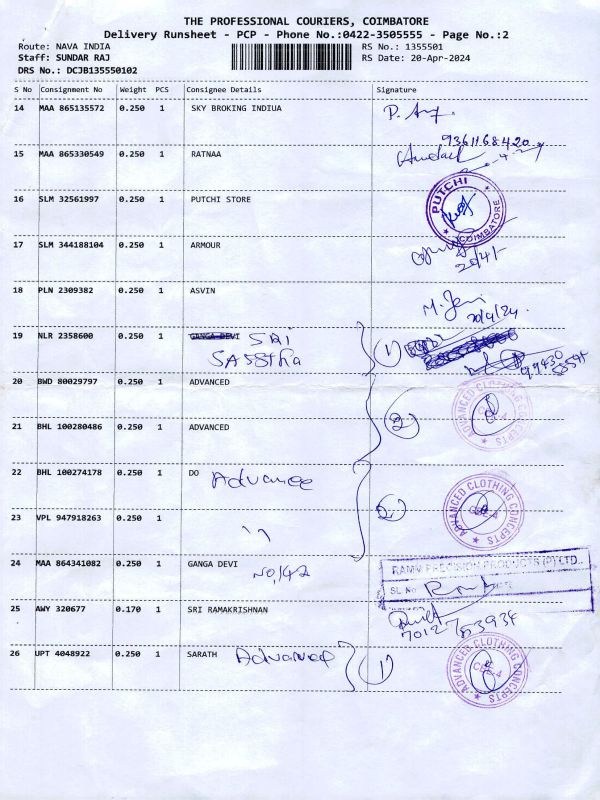 THE PROFESSIONAL COURIERS, COIMBATORE
Delivery Runsheet - PCP - Phone No.:0422-3505555 - Page No.:2
Route: NAVA INDIA RS No.: 1355501
Staff: SUNDAR RAJ RS Date: 20-Apr-2024
DRS No.: DCJB135550102
S No Consignment No Weight PCS Consignee Details Signature
14 MAA 865135572 0.250 1 SKY BROKING INDIUA
9361168420
15 MAA 865330549 0.250 1 RATNAA
16 SLM 32561997 0.250 1 PUTCHI STORE PUTCHI COIMBATORE
17 SLM 344188104 0.250 1 ARMOUR
20/4/-
18 PLN 2309382 0.250 1 ASVIN
20/4/24
19 NLR 2358600 0.250 1 GANGA DEVI SRI 1)
SASStha
20 BWD 80029797 0.250 1 ADVANCED ADVANCED CLOTHING CONCEPTS
21 BHL 100280486 0.250 1 ADVANCED 2)
22 BHL 100274178 0.250 1 DO Advance
23 VPL 947918263 0.250 1 " ADVANCED CLOTHING CONCEPTS CBE-4
24 MAA 864341082 0.250 1 GANGA DEVI
No,142
PRECISION PRODUCTS (P) LTD.,
SL No
25 AWY 320677 0.170 1 SRI RAMAKRISHNAN
7012763934
26 UPT 4048922 0.250 1 SARATH Advanced 1) ADVANCED CLOTHING CONCEPTS CBE-4